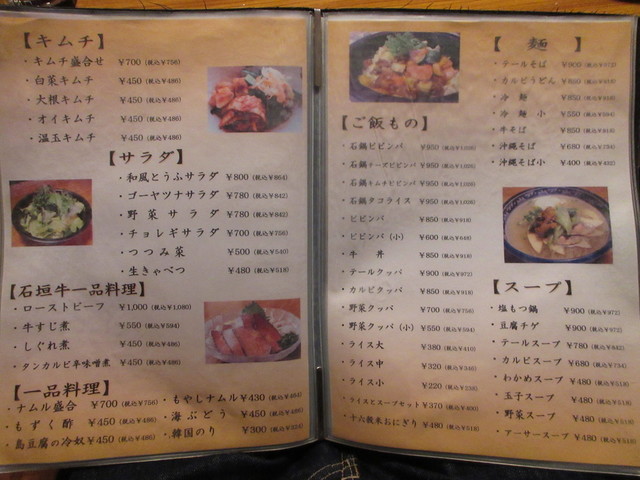 【キムチ】
・キムチ盛合せ ¥700 (税込¥756)
・白菜キムチ ¥450 (税込¥486)
・大根キムチ ¥450 (税込¥486)
・オイキムチ ¥450 (税込¥486)
・温玉キムチ ¥450 (税込¥486)
【サラダ】
・和風とうふサラダ ¥800 (税込¥864)
・ゴーヤツナサラダ ¥780 (税込¥842)
・野菜サラダ ¥780 (税込¥842)
・チョレギサラダ ¥700 (税込¥756)
・つつみ菜 ¥500 (税込¥540)
・生きゃべつ ¥480 (税込¥518)
【石垣牛一品料理】
・ローストビーフ ¥1,000 (税込¥1,080)
・牛すじ煮 ¥550 (税込¥594)
・しぐれ煮 ¥450 (税込¥486)
・タンカルビ辛味噌煮 ¥450 (税込¥486)
【一品料理】
・ナムル盛合 ¥700 (税込¥756)
・もずく酢 ¥450 (税込¥486)
・島豆腐の冷奴 ¥450 (税込¥486)
・もやしナムル ¥430 (税込¥464)
・海ぶどう ¥450 (税込¥486)
・韓国のり ¥300 (税込¥324)
【ご飯もの】
・石鍋ビビンバ ¥950
・石鍋チーズビビンバ ¥950
・石鍋キムチビビンバ ¥950
・石鍋タコライス ¥950
・ビビンバ ¥850 (税込¥918)
・ビビンバ (小) ¥600 (税込¥648)
・牛丼 ¥850 (税込¥918)
・テールクッパ ¥900 (税込¥972)
・カルビクッパ ¥850 (税込¥918)
・野菜クッパ ¥700 (税込¥756)
・野菜クッパ (小) ¥550 (税込¥594)
・ライス大 ¥380 (税込¥410)
・ライス中 ¥320 (税込¥346)
・ライス小 ¥220 (税込¥238)
・ライスとスープセット ¥370 (税込¥400)
・十六穀米おにぎり ¥480 (税込¥518)
【麺】
・テールそば ¥900 (税込¥972)
・カルビうどん ¥850 (税込¥918)
・冷麺 ¥850 (税込¥918)
・冷麺 小 ¥550 (税込¥594)
・牛そば ¥850 (税込¥918)
・沖縄そば ¥680 (税込¥734)
・沖縄そば小 ¥400 (税込¥432)
【スープ】
・塩もつ鍋 ¥900 (税込¥972)
・豆腐チゲ ¥900 (税込¥972)
・テールスープ ¥780 (税込¥842)
・カルビスープ ¥680 (税込¥734)
・わかめスープ ¥480 (税込¥518)
・玉子スープ ¥480 (税込¥518)
・野菜スープ ¥480 (税込¥518)
・アーサースープ ¥480 (税込¥518)